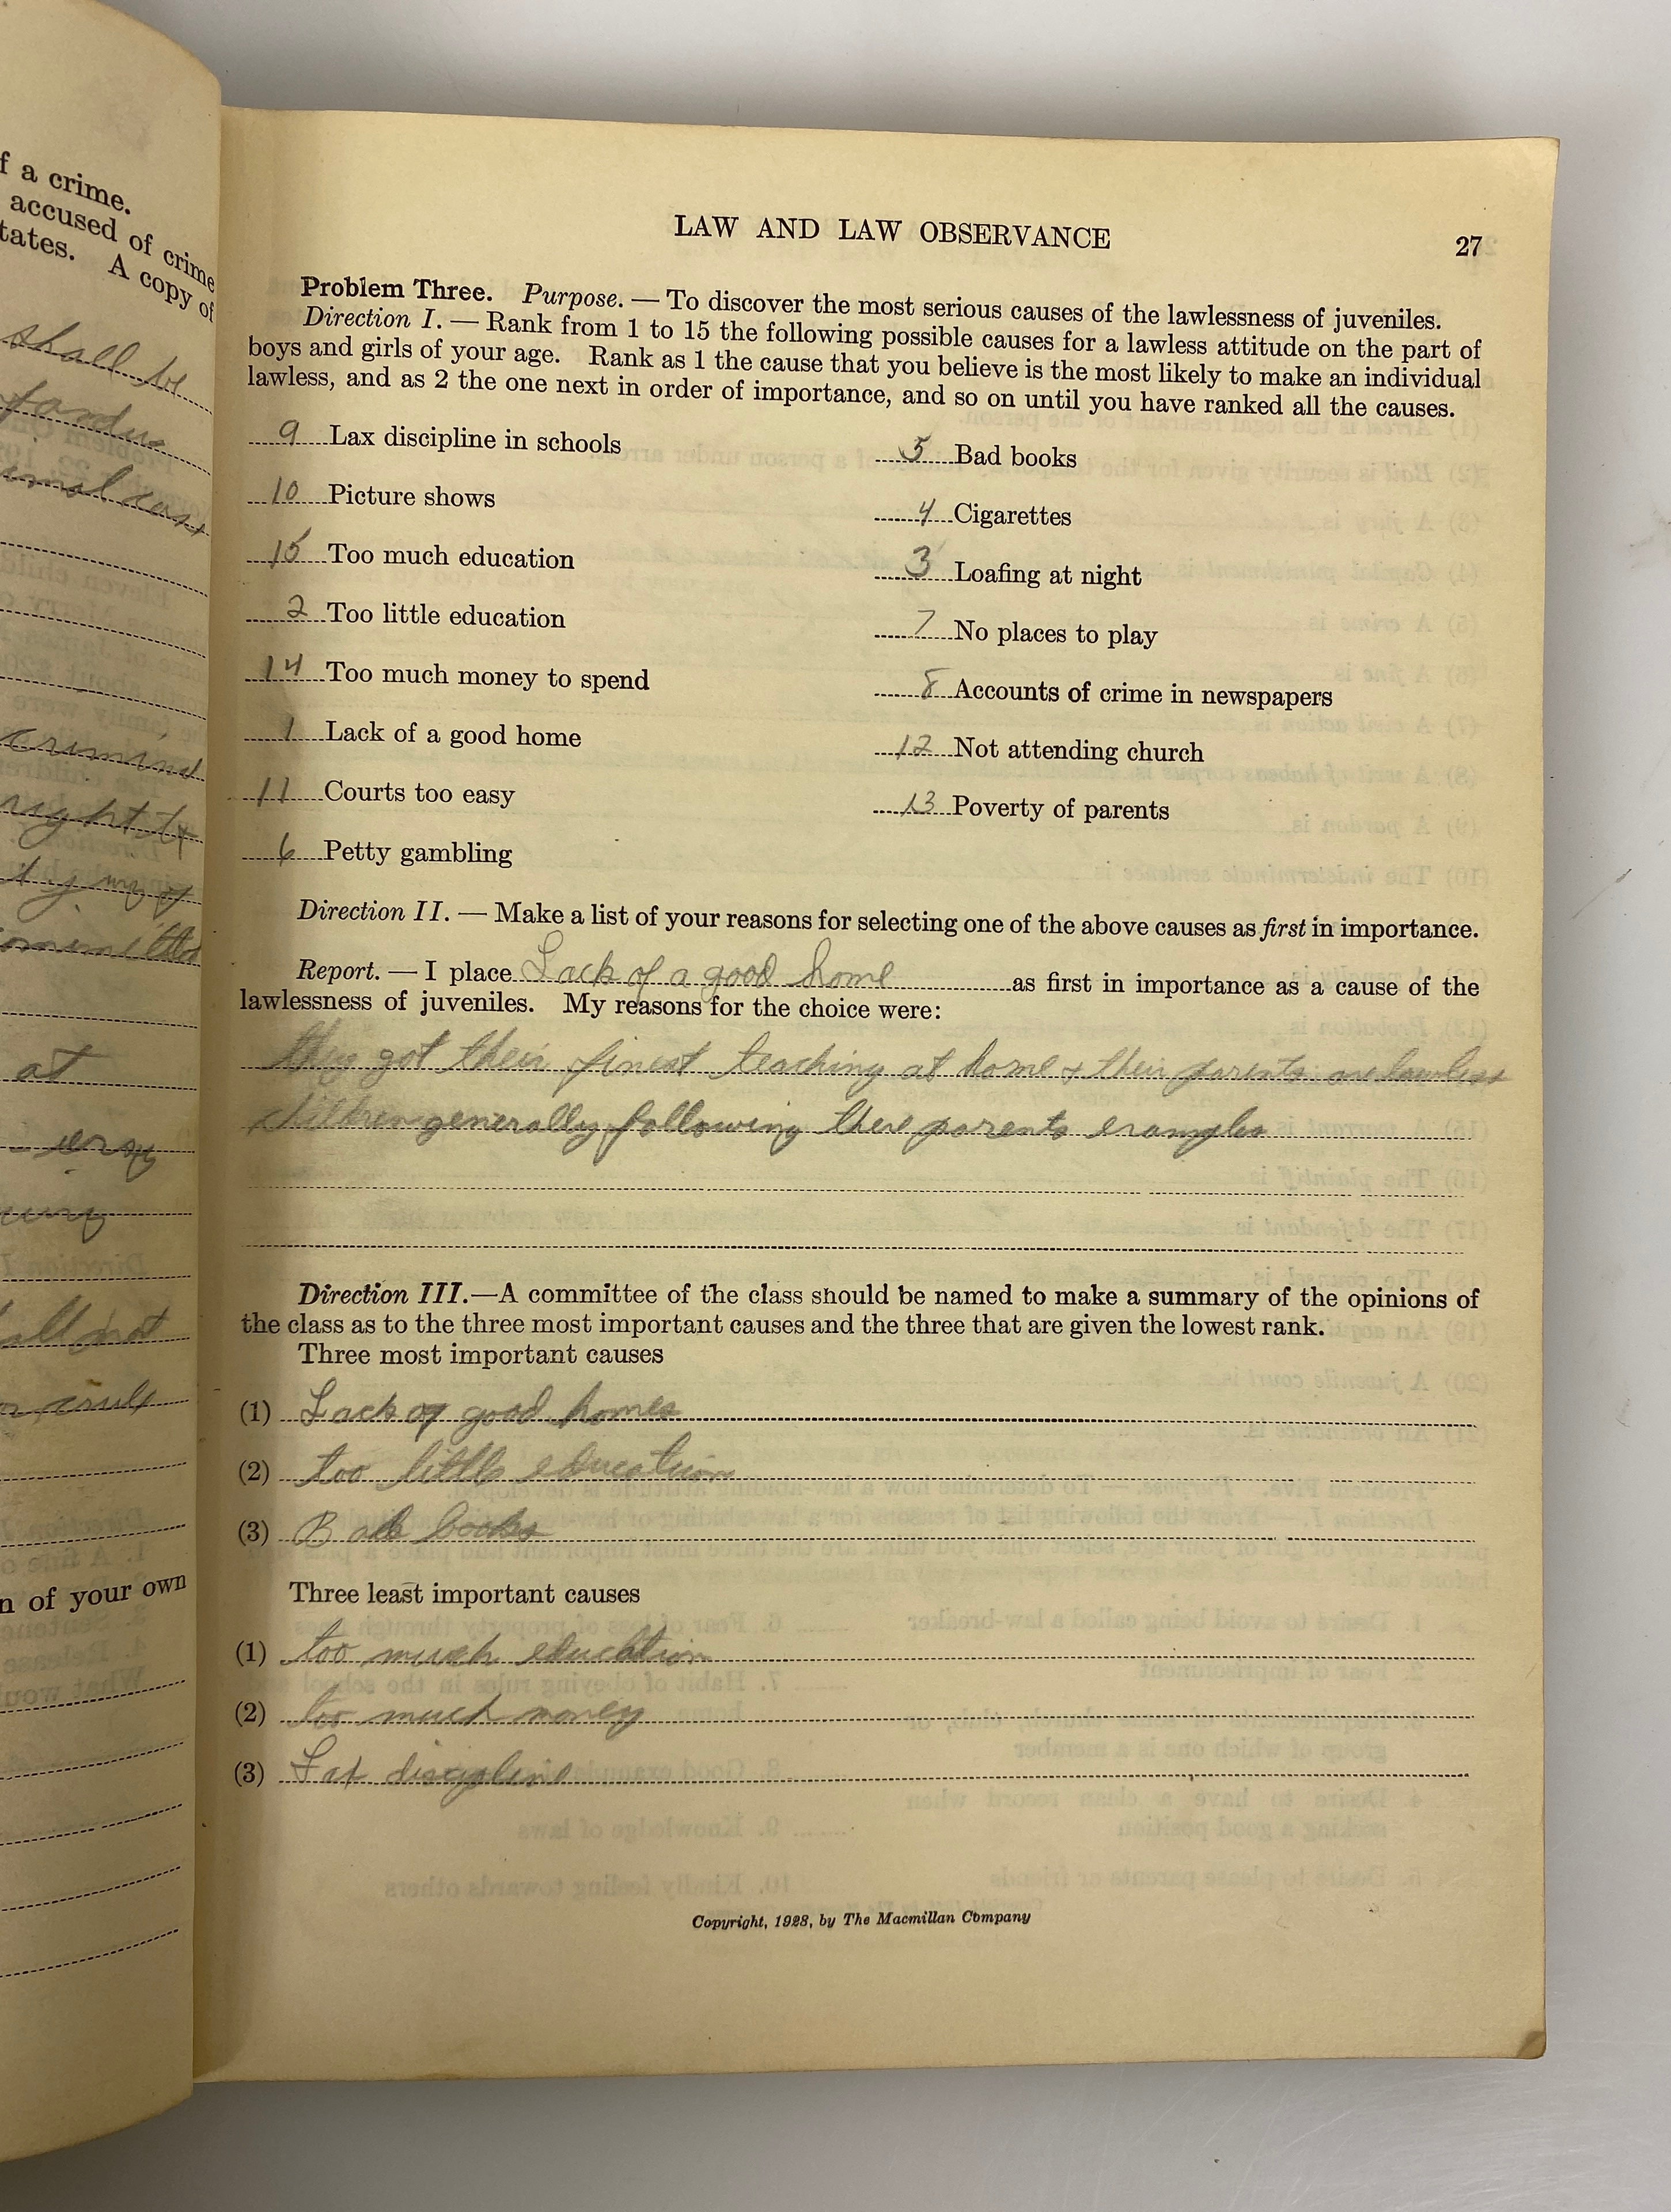 f a crime.
accused of crime
tates. A copy of
shall be
crimind
right to
at
all not
n of your own
LAW AND LAW OBSERVANCE
27
Problem Three. Purpose. — To discover the most serious causes of the lawlessness of juveniles.
Direction I. — Rank from 1 to 15 the following possible causes for a lawless attitude on the part of
boys and girls of your age. Rank as 1 the cause that you believe is the most likely to make an individual
lawless, and as 2 the one next in order of importance, and so on until you have ranked all the causes.
9 Lax discipline in schools
10 Picture shows
15 Too much education
2 Too little education
14 Too much money to spend
1 Lack of a good home
11 Courts too easy
6 Petty gambling
5 Bad books
4 Cigarettes
3 Loafing at night
7 No places to play
8 Accounts of crime in newspapers
12 Not attending church
13 Poverty of parents
Direction II. — Make a list of your reasons for selecting one of the above causes as first in importance.
Report. — I place Lack of a good home as first in importance as a cause of the
lawlessness of juveniles. My reasons for the choice were:
they got their finest teaching at home & their parents are lawless
children generally following there parents examples
Direction III.—A committee of the class should be named to make a summary of the opinions of
the class as to the three most important causes and the three that are given the lowest rank.
Three most important causes
(1) Lack of good homes
(2) too little education
(3) Bad books
Three least important causes
(1) too much education
(2) too much money
(3) Lax discipline
Copyright, 1928, by The Macmillan Company